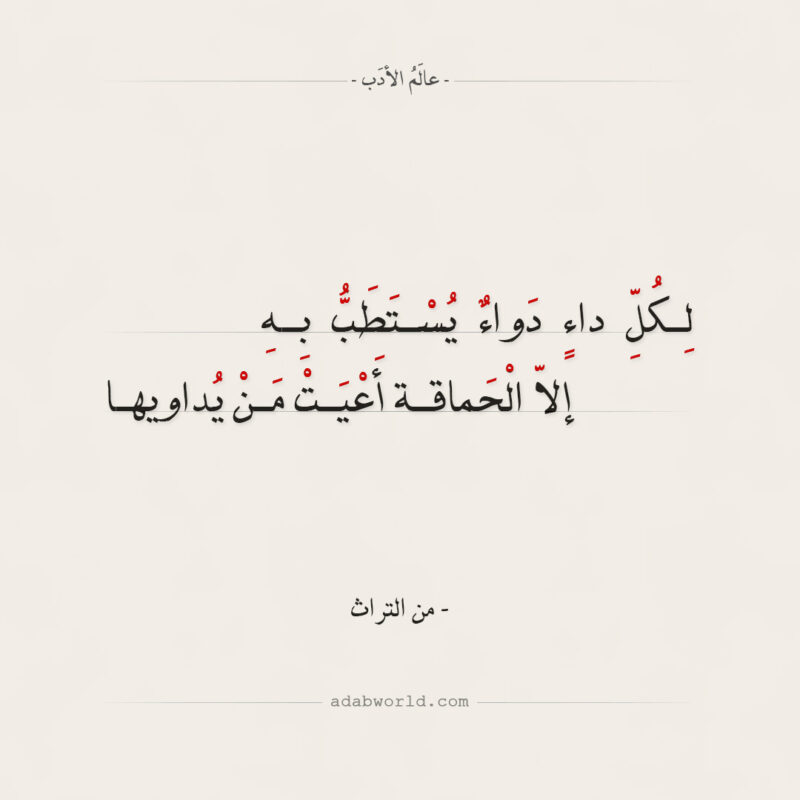 - عالَمُ الأدَب -
لِكُلِّ داءٍ دَواءٌ يُسْتَطَبُّ بِهِ
إلاّ الْحَماقة أَعْيَتْ مَنْ يُداويها
- من التراث
adabworld.com